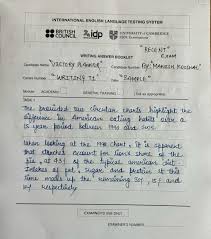 INTERNATIONAL ENGLISH LANGUAGE TESTING SYSTEM
BRITISH COUNCIL
idp
UNIVERSITY of CAMBRIDGE
WRITING ANSWER BOOKLET
"RECENT"
EXAM
Candidate Name:
Candidate Number:
Centre Number:
"WRITING T1"
Date:
"SAMPLE"
Module:
ACADEMIC
GENERAL TRAINING
TASK 1
The provided two circular charts highlight the
difference in American eating habits over a
15 year period between 1990 and
When looking at the chart, it is apparent
that starches account for lion's share of the
pie, at 43% of the typical American diet.
Intakes of fat, sugar and protein at this
time made up the remaining
respectively
EXAMINER'S USE ONLY
EXAMINER'S NUMBER: